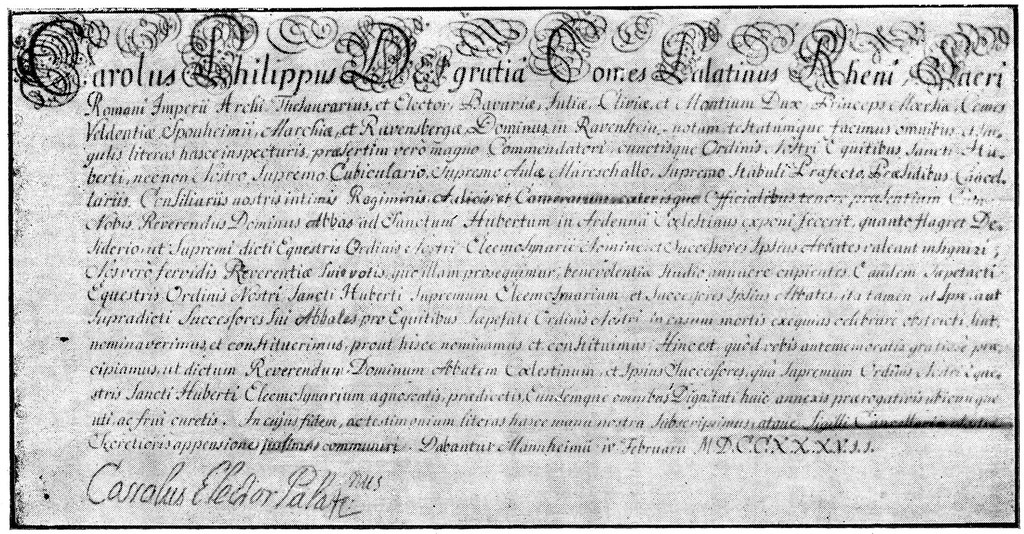 Carolus Philippus D. G. gratia Comes Palatinus Rheni, Sacri
Romani Imperii Archi-Thesaurarius, et Elector, Bavariæ, Juliæ, Cliviæ, et Montium Dux, Princeps Mœrsiæ, Comes
Veldentiæ Sponheimii, Marchiæ, et Ravensbergæ, Dominus in Ravenstein, notum testatumque facimus omnibus et sin-
gulis literas hasce inspecturis, præsertim vero magno Commendatori, cunctisque Ordinis Nostri Equitibus Sancti Hu-
berti, necnon Nostro Supremo Cubiculario, Supremo Aulæ Mareschallo, Supremo Stabuli Præfecto, Præsidibus Cancel-
lariis, Consiliariis nostris intimis Regiminis Aulicis, et Camerarum, cæterisque Officialibus tenore præsentium Cum
Nobis, Reverendus Dominus Abbas ad Sanctum Hubertum in Ardenna Cœlestinus exponi fecerit, quanto flagret De-
siderio, ut Supremi dicti Equestris Ordinis Nostri Eleemosynarii Nomine, et Successores Ipsius Abbates valeant insigniri;
Nos vero fervidis Reverentiæ Suæ votis, que illam prosequimur, benevolentiæ studio annuere cupientes, Eundem Sapefati
Equestris Ordinis Nostri Sancti Huberti Supremum Eleemosinarium, et Successores Ipsius Abbates, ita tamen ut Ipse, aut
Supradicti Successores Sui Abbates pro Equitibus Sapefati Ordinis Nostri in casum mortis exequias celebrare obstricti sint,
nominaverimus et constituerimus, prout hisce nominamus et constituimus. Hinc est, quod vobis antememoratis gratiose præ-
cipiamus, ut dictum Reverendum Dominum Abbatem Cœlestinum, et Ipsius Successores, qua Supremum Ordinis Nostri Eque-
stris Sancti Huberti Eleemosynarium agnoscatis, prædictis, Eumdemque omnibus Dignitati huic annexis prærogativis ubicunque
uti, ac frui curetis. In cujus fidem, ac testimonium literas hasce manu nostra Subscripsimus, atque Sigilli Cancellariæ nostræ
Secretioris appensione jussimus communiri. Dabantur Mannheimii iv Februarii MDCCXXXVII.
Carolus Elector Palatinus